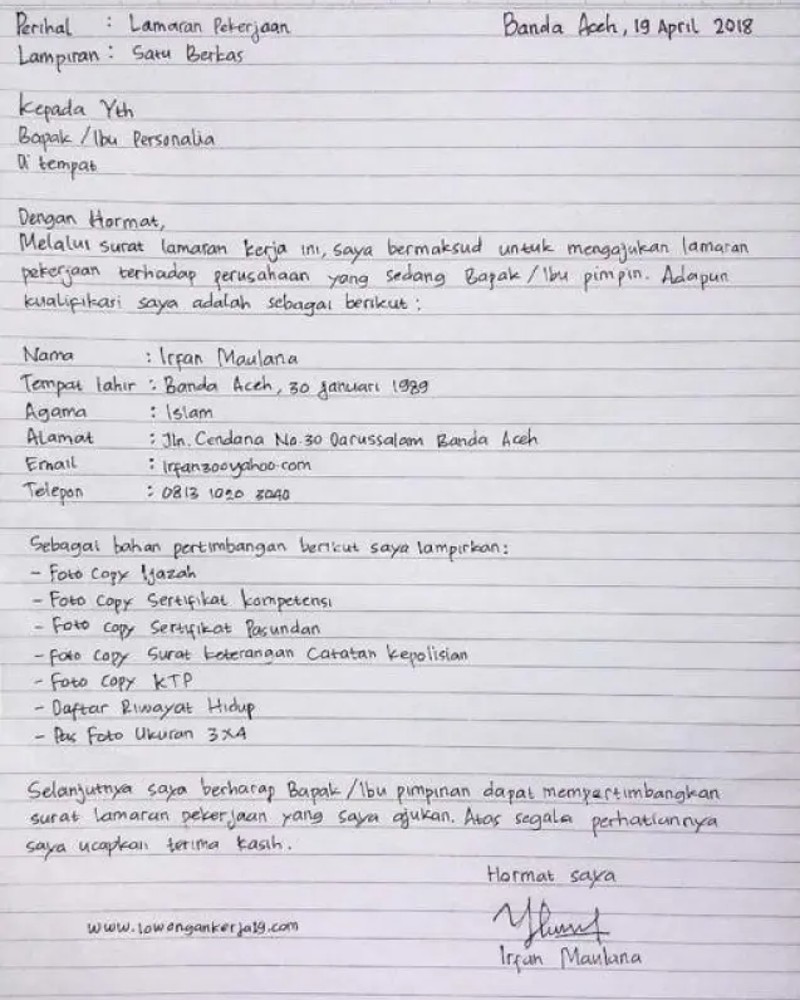 Perihal : Lamaran Pekerjaan Banda Aceh, 19 April 2018
Lampiran : Satu Berkas
Kepada Yth
Bapak/Ibu Personalia
Di tempat
Dengan Hormat,
Melalui surat lamaran kerja ini, saya bermaksud untuk mengajukan lamaran
pekerjaan terhadap perusahaan yang sedang Bapak/Ibu pimpin. Adapun
kualifikasi saya adalah sebagai berikut :
Nama : Irfan Maulana
Tempat lahir : Banda Aceh, 30 Januari 1989
Agama : Islam
Alamat : Jln. Cendana No.30 Darussalam Banda Aceh
Email : irfan300yahoo.com
Telepon : 0813 1020 3040
Sebagai bahan pertimbangan berikut saya lampirkan :
- Foto Copy Ijazah
- Foto Copy Sertifikat Kompetensi
- Foto Copy Sertifikat Pasundan
- Foto Copy Surat Keterangan Catatan Kepolisian
- Foto Copy KTP
- Daftar Riwayat Hidup
- Pas Foto Ukuran 3x4
Selanjutnya saya berharap Bapak/Ibu pimpinan dapat mempertimbangkan
surat lamaran pekerjaan yang saya ajukan. Atas segala perhatiannya
saya ucapkan terima kasih.
Hormat saya
www.lowongankerja19.com
Irfan Maulana